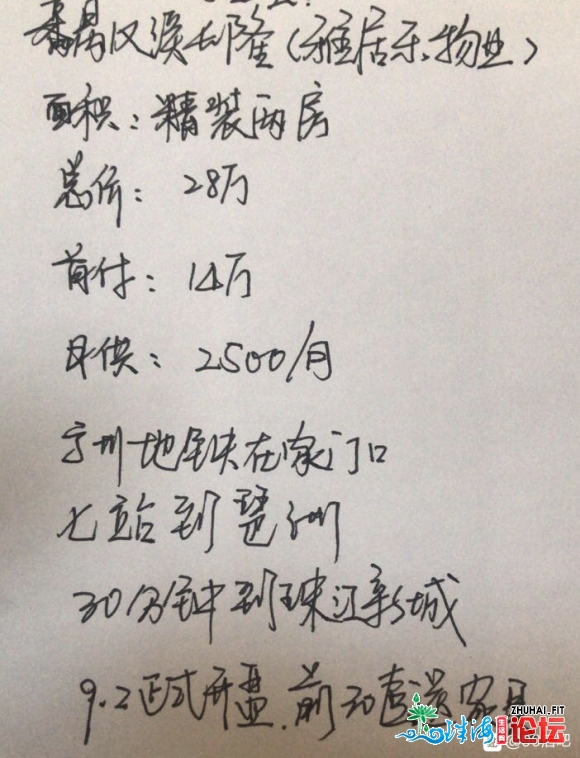 番禺汉溪长隆(雅居乐物业)
面积:精装两房
总价:28万
首付:14万
月供:2500/月
广州地铁在家门口
七站到琶洲
30分钟到珠江新城
9.2正式开盘.前30套送家具
ZHUHAI.FIT
珠海 生活圈 论坛